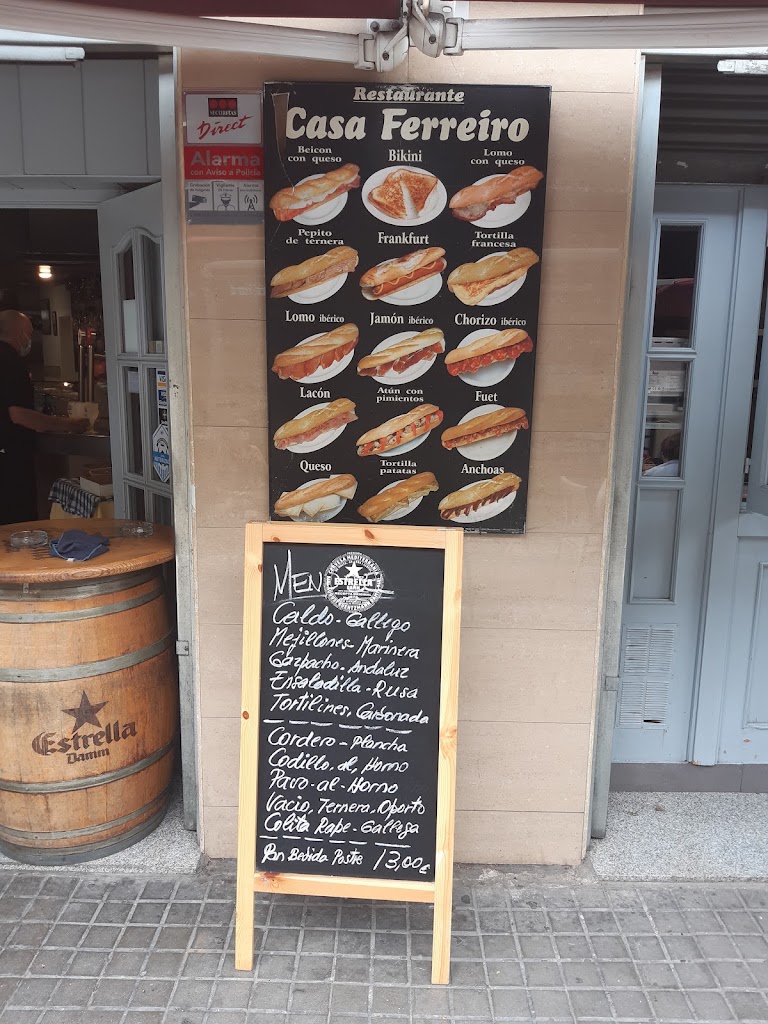 SECURITAS
Direct
Alarma
con Aviso a Policía
Restaurante
Casa Ferreiro
Beicon
con queso
Bikini
Lomo
con queso
Pepito
de ternera
Frankfurt
Tortilla
francesa
Lomo ibérico
Jamón ibérico
Chorizo ibérico
Lacón
Atún con
pimientos
Fuet
Queso
Tortilla
patatas
Anchoas
MEN
ESTRELLA
DAMM
Caldo-Gallego
Mejillones-Marinera
Gazpacho-Andaluz
Ensaladilla-Rusa
Tortilines, Carbonada
Cordero-Plancha
Codillo, al, Horno
Pavo-al-Horno
Vacio, Ternera, Oporto
Colita Rape-Gallega
Pan Bebida Postre 13,00€
Estrella
Damm
VISA